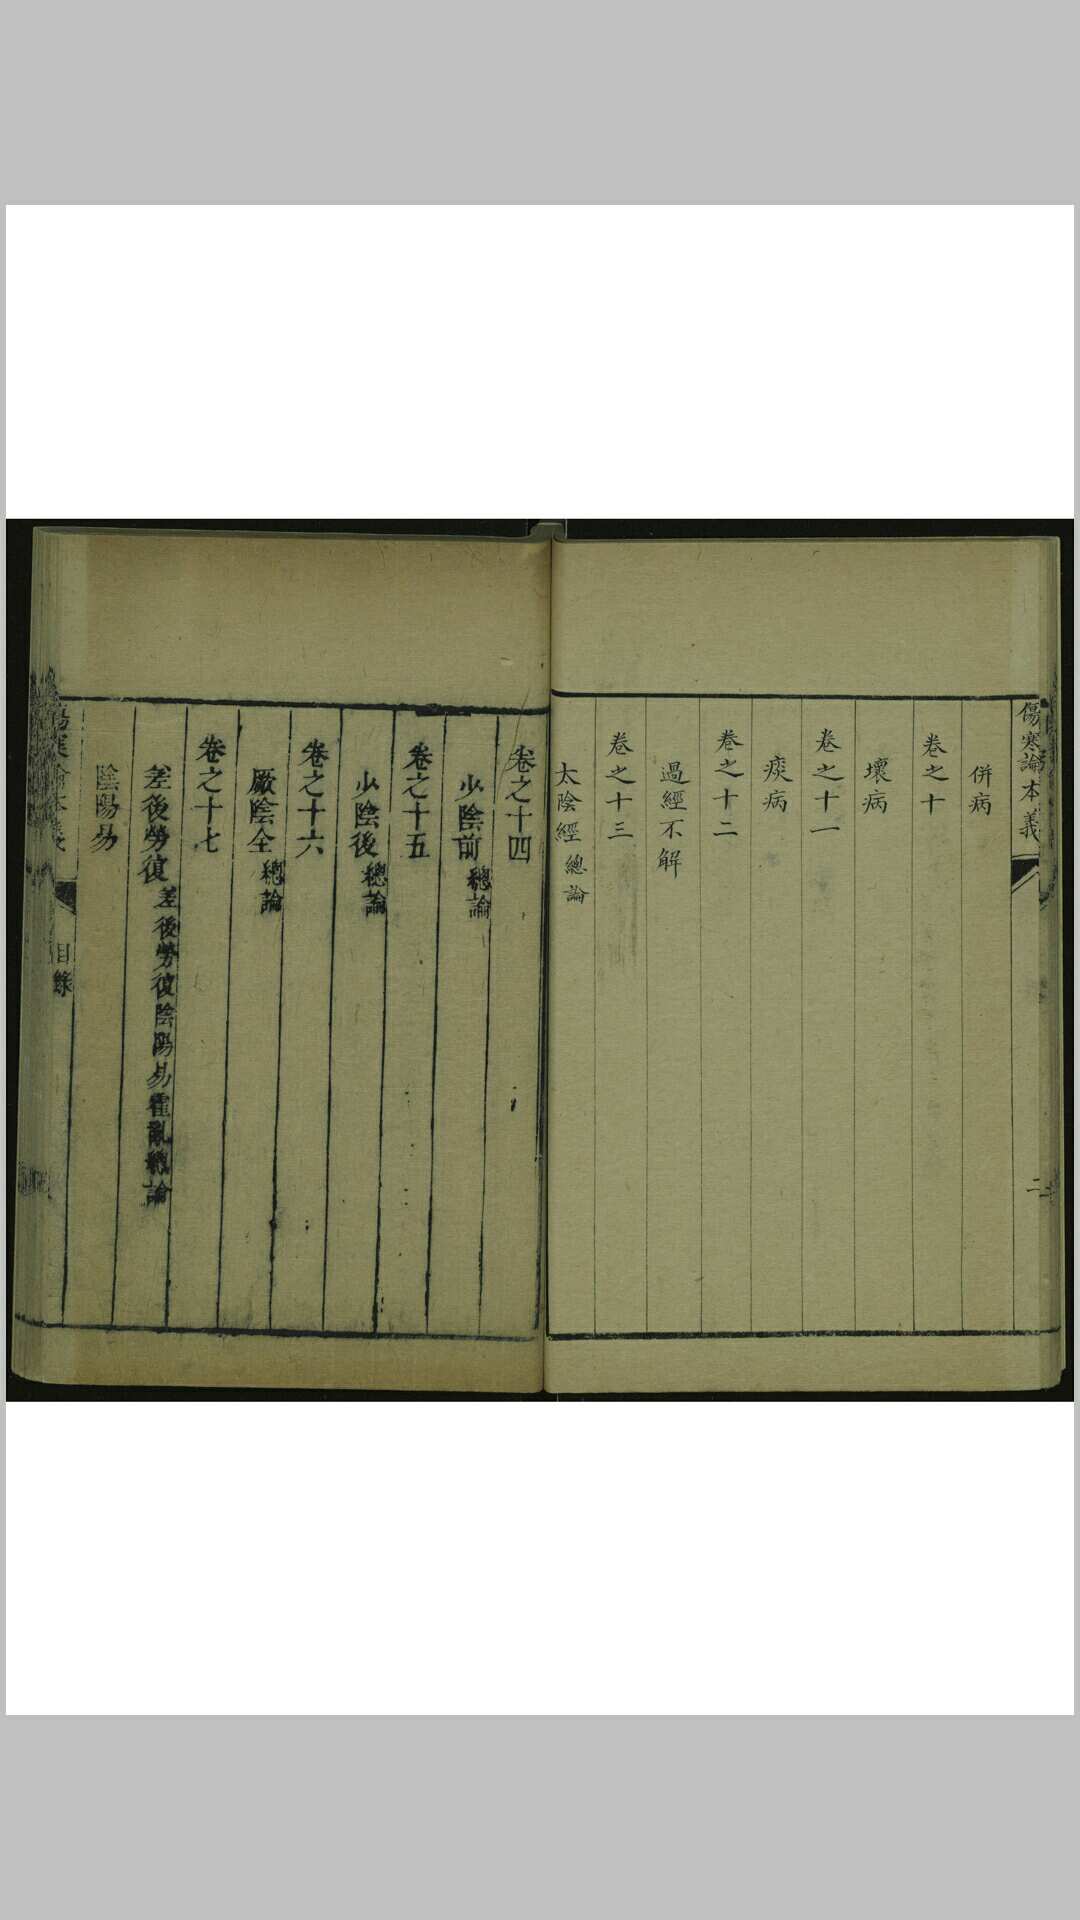 傷寒論本義
二
併病
卷之十
壞病
卷之十一
痰病
卷之十二
過經不解
卷之十三
太陰經總論
卷之十四
少陰前總論
卷之十五
少陰後總論
卷之十六
厥陰全總論
卷之十七
差後勞復差後勞復陰陽易霍亂總論
陰陽易
目錄